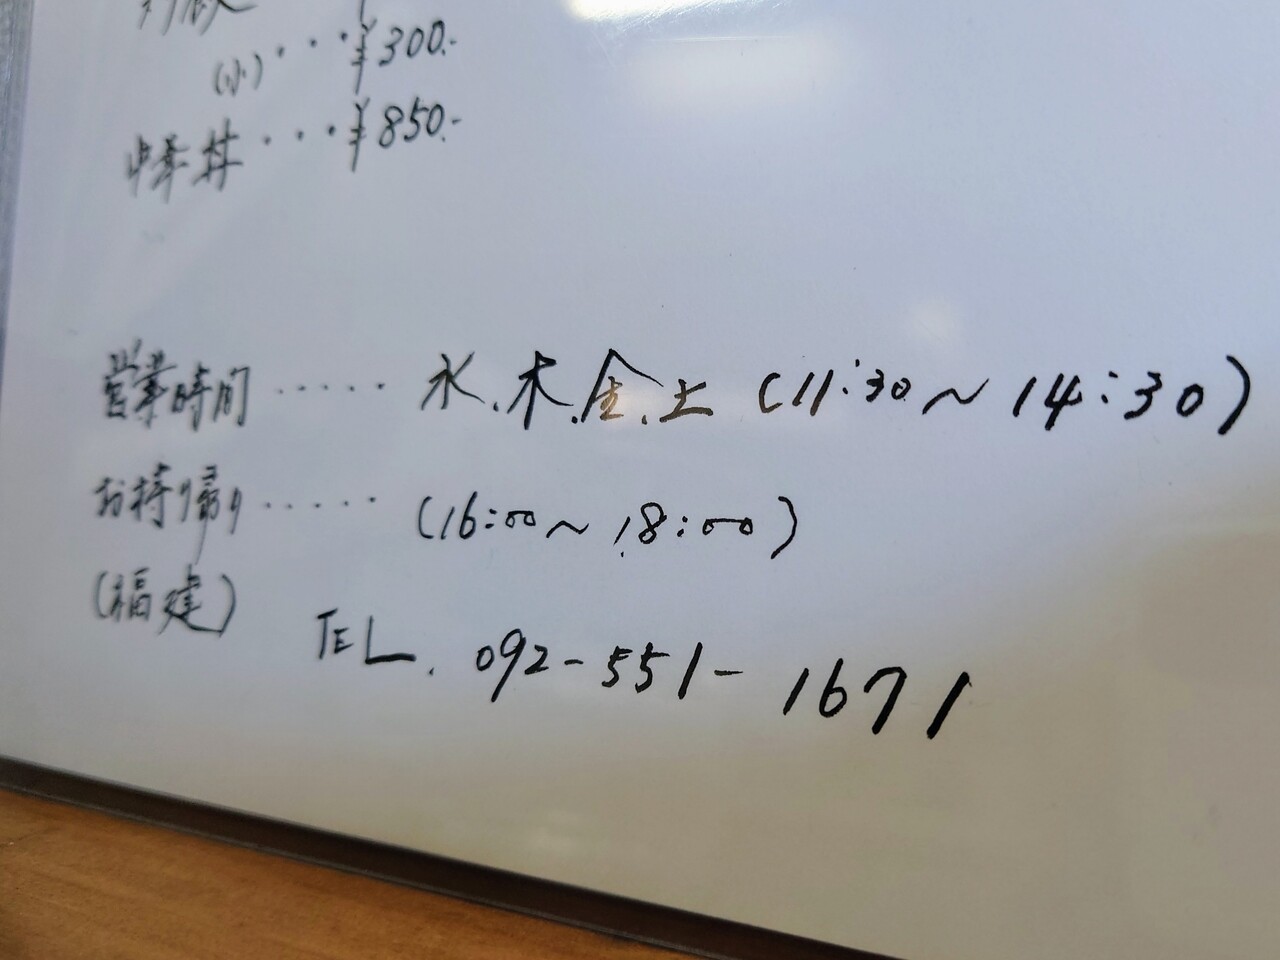 (小)・・・¥300.-
中華丼・・・¥850.-
営業時間・・・・・水.木.金.土(11:30~14:30)
お持ち帰り・・・・・(16:00~18:00)
(福建)
TEL.092-551-1671